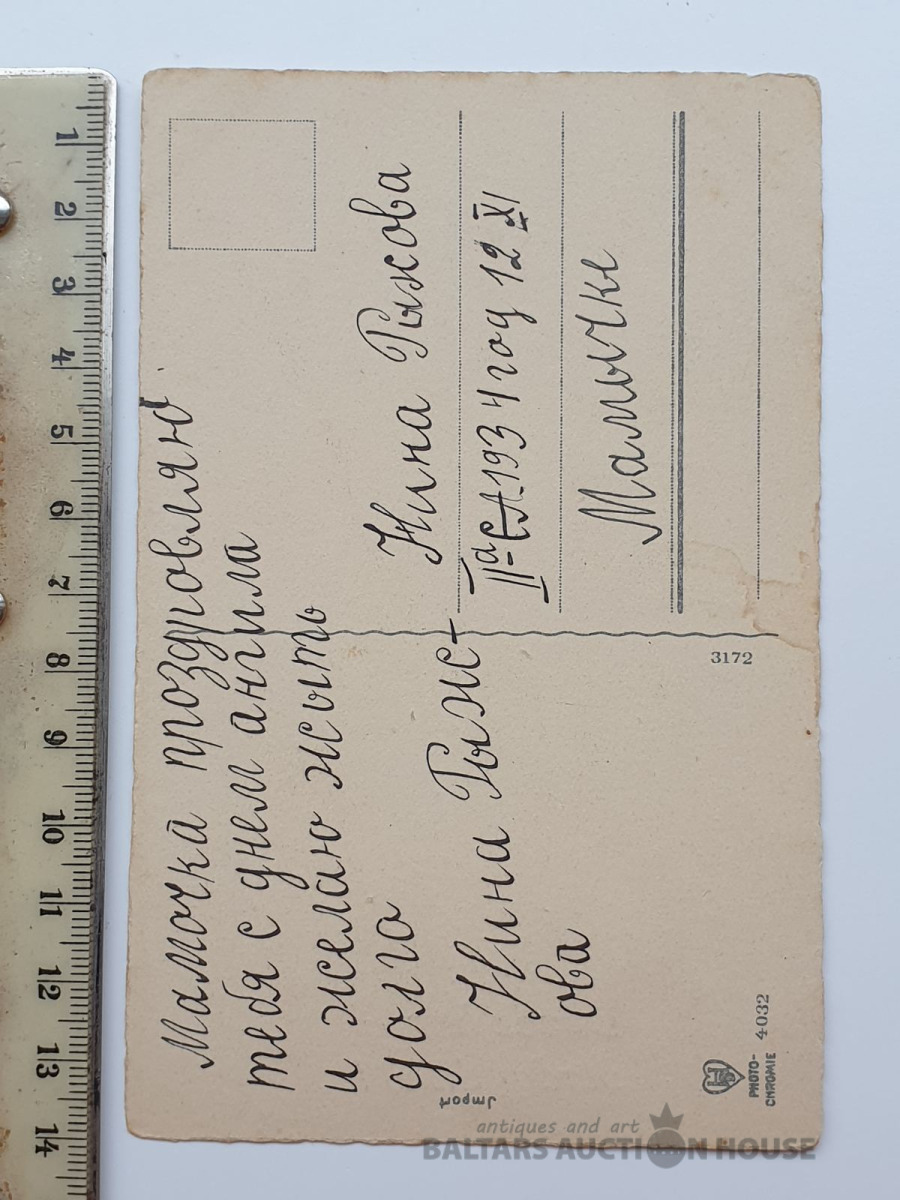 Мамочка проздровляю
тебя с днем ангила
и желаю жыть
долго
Нина Рыж-
ова
Нина Рыжова
1934 год 12 XI
Мамычке
3172
Import
PHOTO-
CHROMIE
4032
1 2 3 4 5 6 7 8 9 10 11 12 13 14
antiques and art
BALTARS AUCTION HOUSE